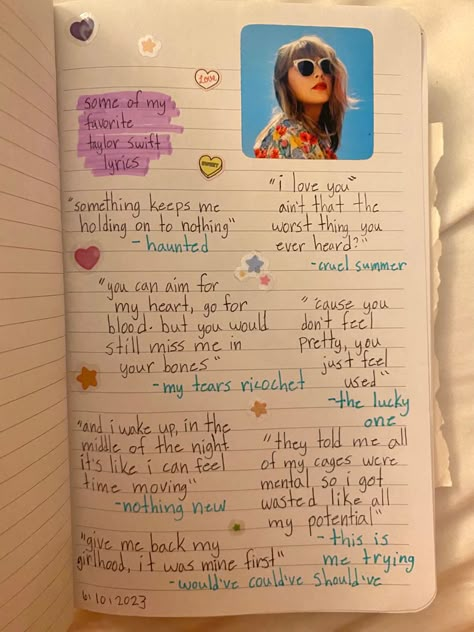 LOVE
some of my
favorite
taylor swift
lyrics
SWEET
"something keeps me
holding on to nothing"
- haunted
"i love you"
ain't that the
worst thing you
ever heard?"
- cruel summer
"you can aim for
my heart, go for
blood. but you would
still miss me in
your bones"
- my tears ricochet
"'cause you
don't feel
pretty, you
just feel
used"
- the lucky
one
"and i wake up, in the
middle of the night
it's like i can feel
time moving"
- nothing new
"they told me all
of my cages were
mental, so i got
wasted like all
my potential"
- this is
me trying
"give me back my
girlhood, it was mine first"
- would've could've should've
6/10/2023